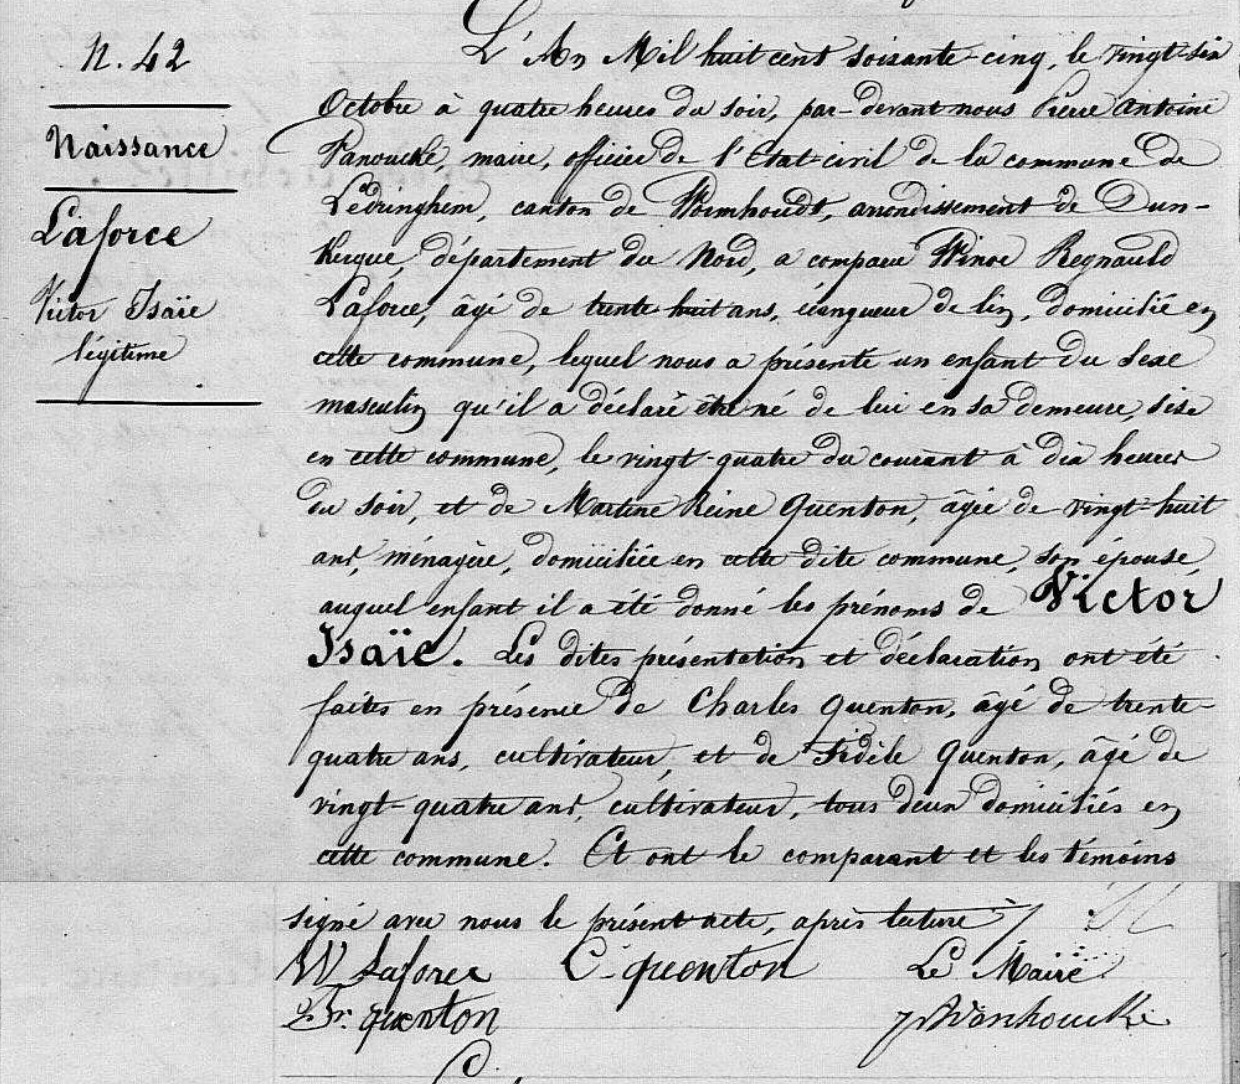 N. 42
Naissance
Laforce
Victor Isaïe
légitime
L'An Mil huit cent soixante-cinq, le vingt-six
Octobre à quatre heures du soir, par-devant nous Pierre Antoine
Vanoucke, maire, officier de l'Etat-civil de la commune de
Ledringhem, canton de Wormhoudt, arrondissement de Dun-
kerque, département du Nord, a comparu Winoc Regnauld
Laforce, âgé de trente-huit ans, écangueur de lin, domicilié en
cette commune, lequel nous a présenté un enfant du sexe
masculin qu'il a déclaré être né de lui en sa demeure, sise
en cette commune, le vingt-quatre du courant à dix heures
du soir, et de Martine Reine Quenton, âgée de vingt-huit
ans, ménagère, domiciliée en cette dite commune, son épouse,
auquel enfant il a été donné les prénoms de Victor
Isaïe. Les dites présentation et déclaration ont été
faites en présence de Charles Quenton, âgé de trente-
quatre ans, cultivateur, et de Fidèle Quenton, âgé de
vingt-quatre ans, cultivateur, tous deux domiciliés en
cette commune. Et ont le comparant et les témoins
signé avec nous le présent acte, après lecture
W Laforce C. quenton Le Maire
quenton